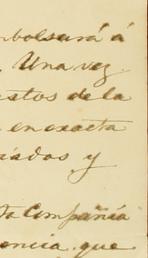 mbolsará á
. Una vez
estos de la
en exacta
iados y
ta Compañia
encia que